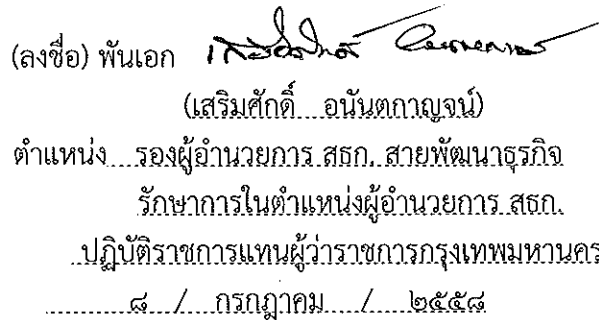 (ลงชื่อ) พันเอก
(เสริมศักดิ์ อนันตกาญจน์)
ตำแหน่ง รองผู้อำนวยการ สธก. สายพัฒนาธุรกิจ
รักษาการในตำแหน่งผู้อำนวยการ สธก.
ปฏิบัติราชการแทนผู้ว่าราชการกรุงเทพมหานคร
๘ / กรกฎาคม / ๒๕๕๘